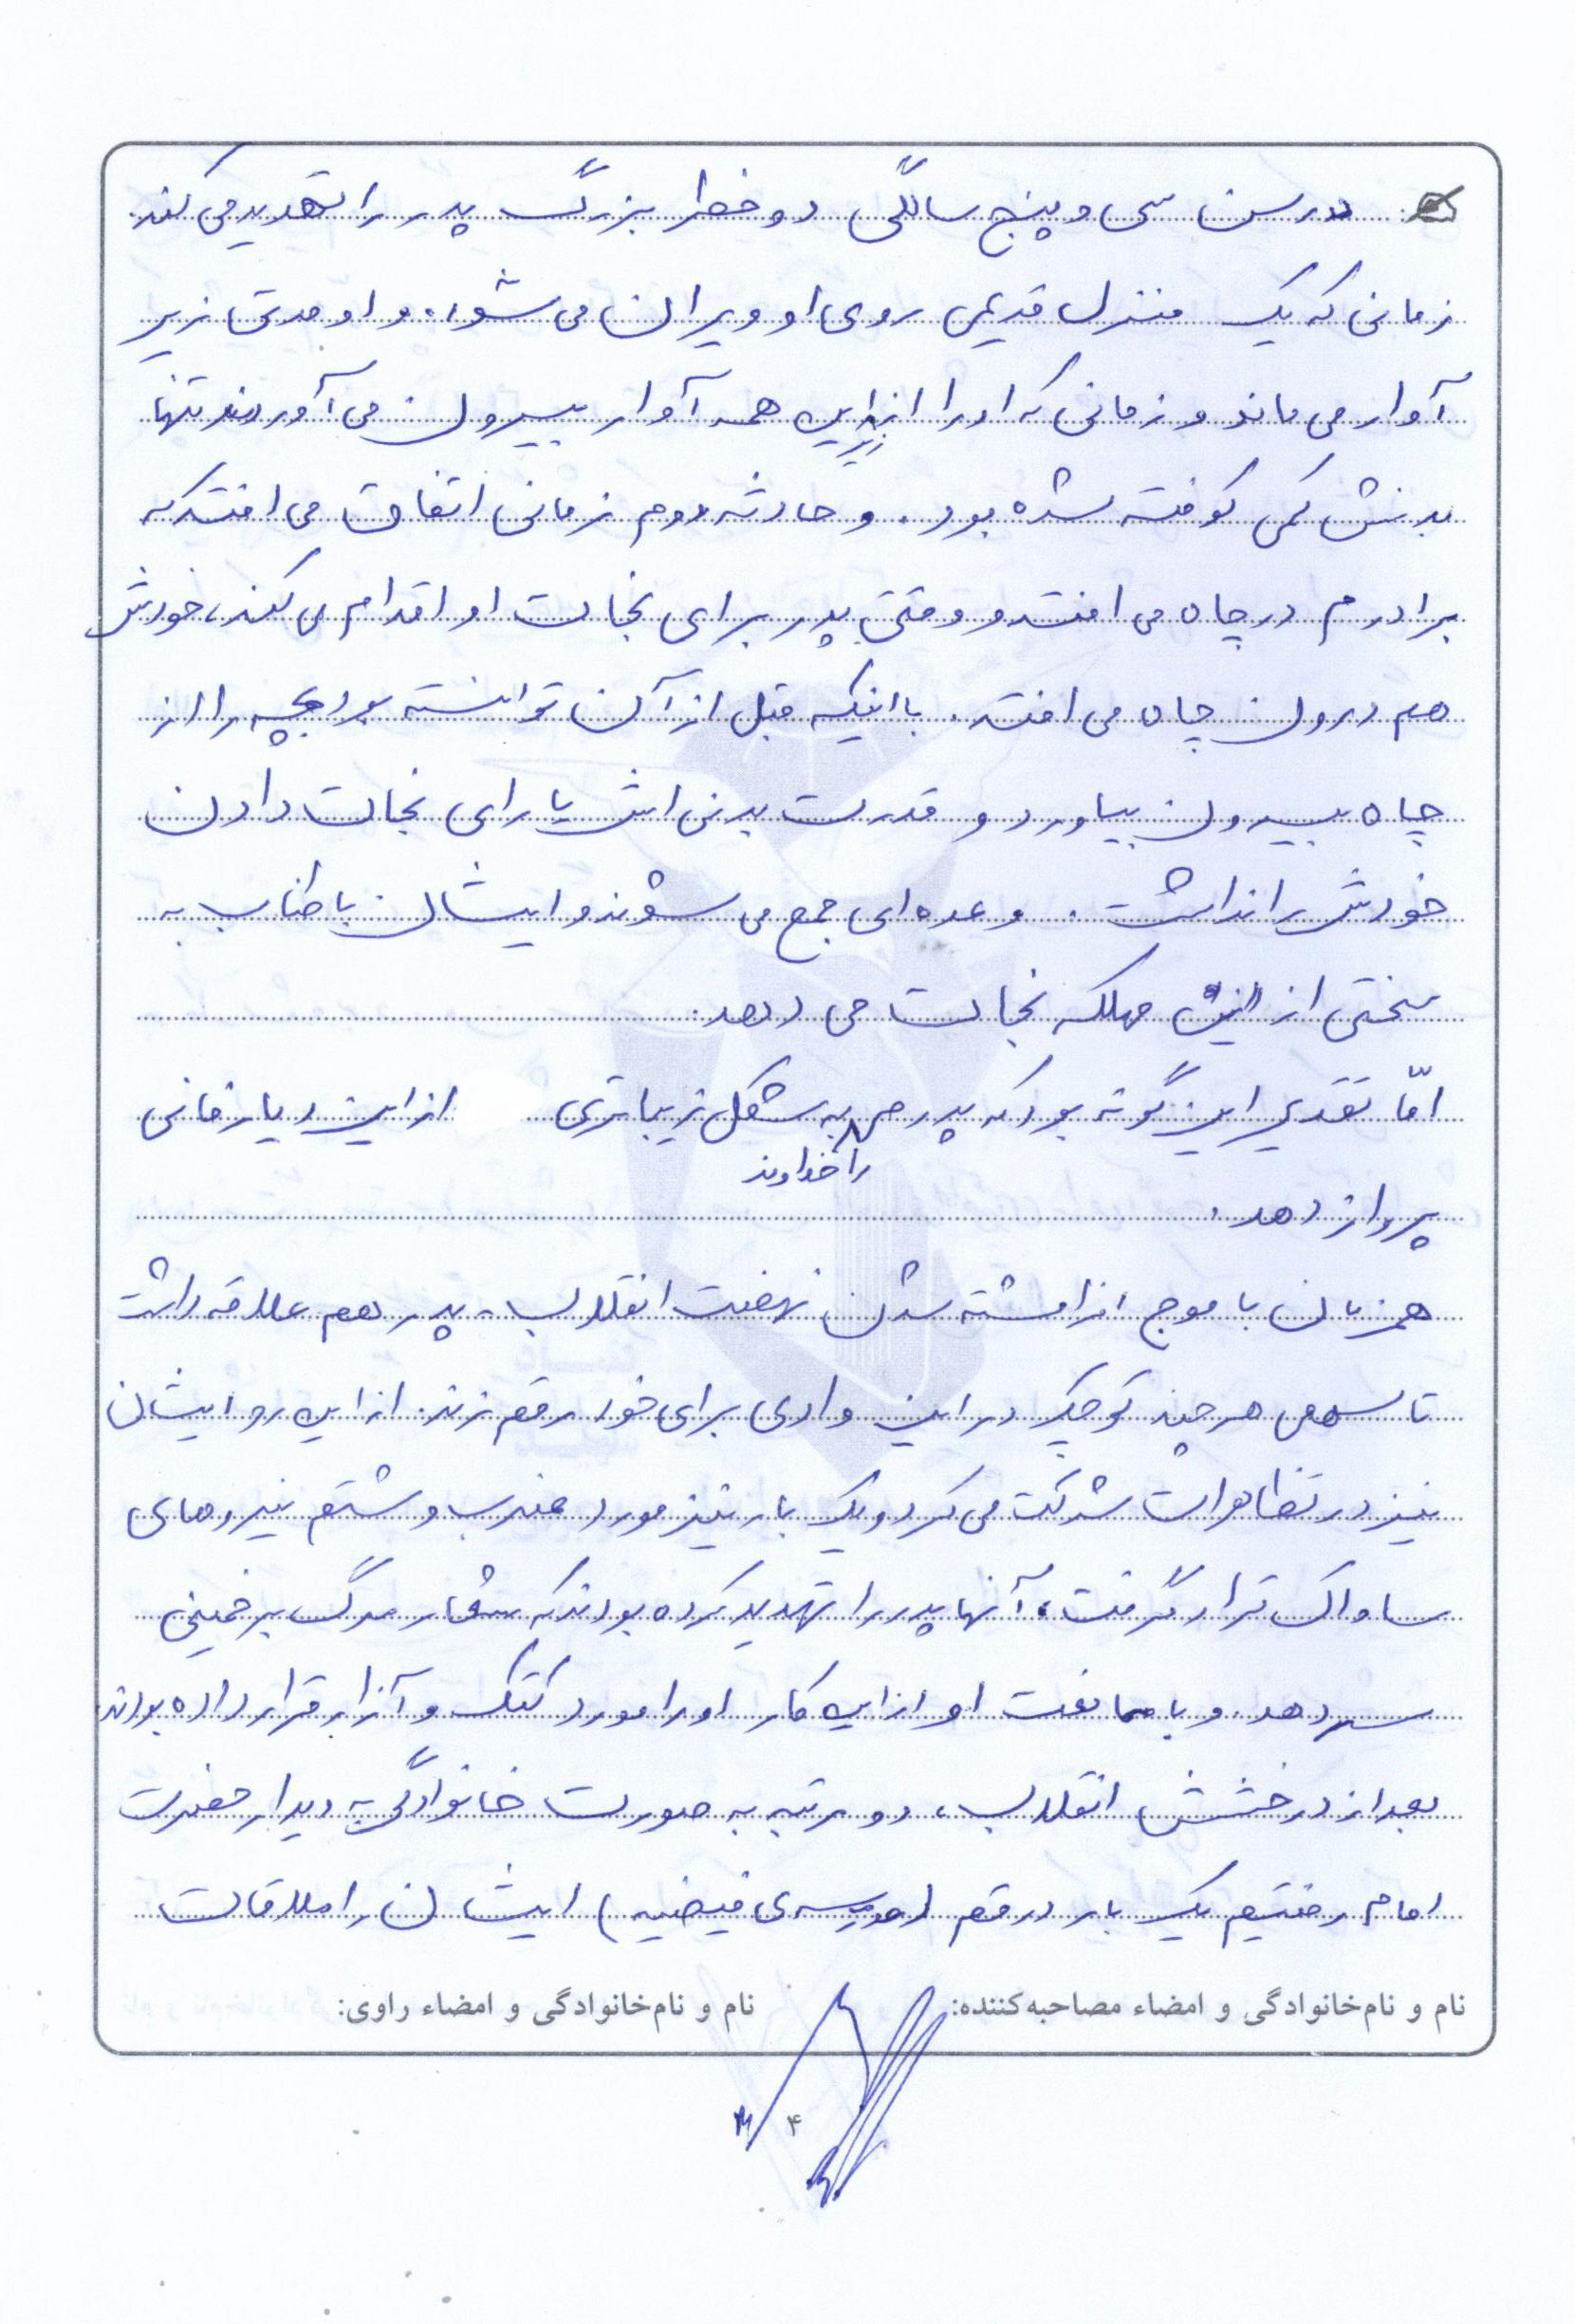 در سن سی و پنج سالگی دو خطر بزرگ پدر را تهدید می کند.
زمانی که یک منزل قدیمی روی او ویران می شود. و او مدتی زیر
آوار می ماند و زمانی که او را از زیر این همه آوار بیرون می آوردند تنها
بدنش کمی کوفته شده بود. و حادثه دوم زمانی اتفاق می افتد که
برادرم در چاه می افتد و وقتی پدر برای نجات او اقدام می کند، خودش
هم درون چاه می افتد. با اینکه قبل از آن توانسته بود بچه را از
چاه بیرون بیاورد و قدرت بدنی اش یارای نجات دادن
خودش را نداشت. و عده ای جمع می شوند و ایشان با طناب به
سختی از این مهلکه نجات می دهد.
امّا تقدیر این گونه بود که پدرم را خداوند به شکل زیباتری از این دیار فانی
پرواز دهد.
همزمان با موج افراشته شدن نهضت انقلاب، پدر هم علاقه داشت
تا سهمی هر چند کوچک در این وادی برای خود رقم زند. از این رو ایشان
نیز در تظاهرات شرکت می کرد و یک بار نیز مورد ضرب و شتم نیروهای
ساواک قرار گرفت، آنها پدر را تهدید کرده بودند که شعار مرگ بر خمینی
سر دهد. و با ممانعت او از این کار او را مورد کتک و آزار قرار داده بودند.
بعد از درخشش انقلاب، دو مرتبه به صورت خانوادگی به دیدار حضرت
امام رفتیم یک بار در قم (مدرسه ی فیضیه) ایشان را ملاقات
نام و نام‌خانوادگی و امضاء مصاحبه‌کننده: نام و نام‌خانوادگی و امضاء راوی:
۴